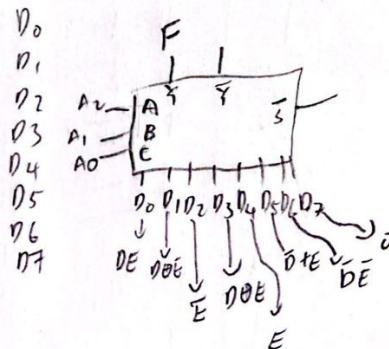 D0
D1
D2
D3
D4
D5
D6
D7
F
Y Y̅
A2 A S̅
A1 B
A0 C
D0 D1 D2 D3 D4 D5 D6 D7
DE D⊕E̅ E̅ D⊕E E D̅+E D̅E̅